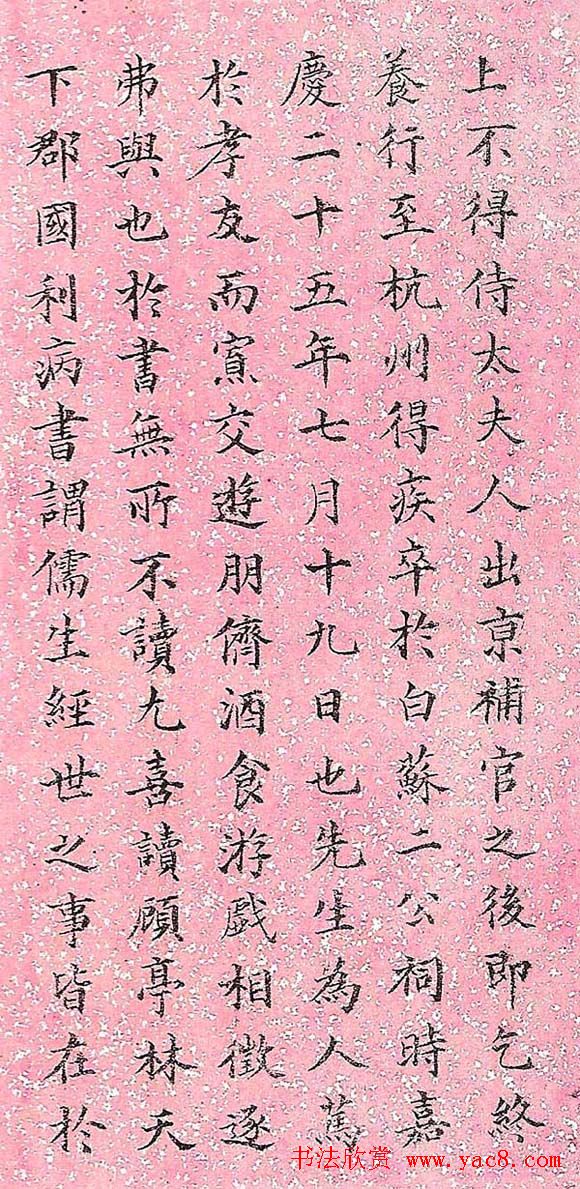 上不得侍太夫人出京補官之後即乞終
養行至杭州得疾卒於白蘇二公祠時嘉
慶二十五年七月十九日也先生為人篤
於孝友而寡交遊朋儕酒食游戲相徵逐
弗與也於書無所不讀尤喜讀顧亭林天
下郡國利病書謂儒生經世之事皆在於
书法欣赏 www.yac8.com